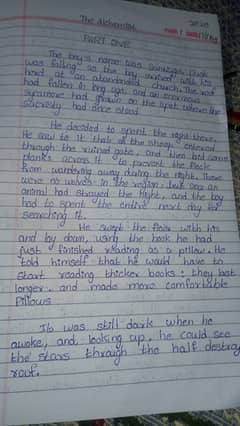 The Alchemist
PART ONE
The boy's name was Santiago. Dusk
was falling as the boy arrived with his
herd at an abandoned church. The roof
had fallen in long ago, and an enormous
sycamore had grown on the spot where the
sacristy had once stood
He decided to spent the night there.
He saw to it that all the sheep entered
through the ruined gate, and then laid some
planks across it to prevent the flock
from wandering away during the night. There
were no wolves in the region, but once an
animal had strayed the night, and the boy
had to spent the entire next day for
searching it.
He swept the floor with his
and lay down, using the book he had
just finished reading as a pillow. He
told himself that he would have to
start reading thicker books: they last
longer, and made more comfortable
Pillows
It was still dark when he
awoke, and, looking up, he could see
the stars through the half destroy
roof.